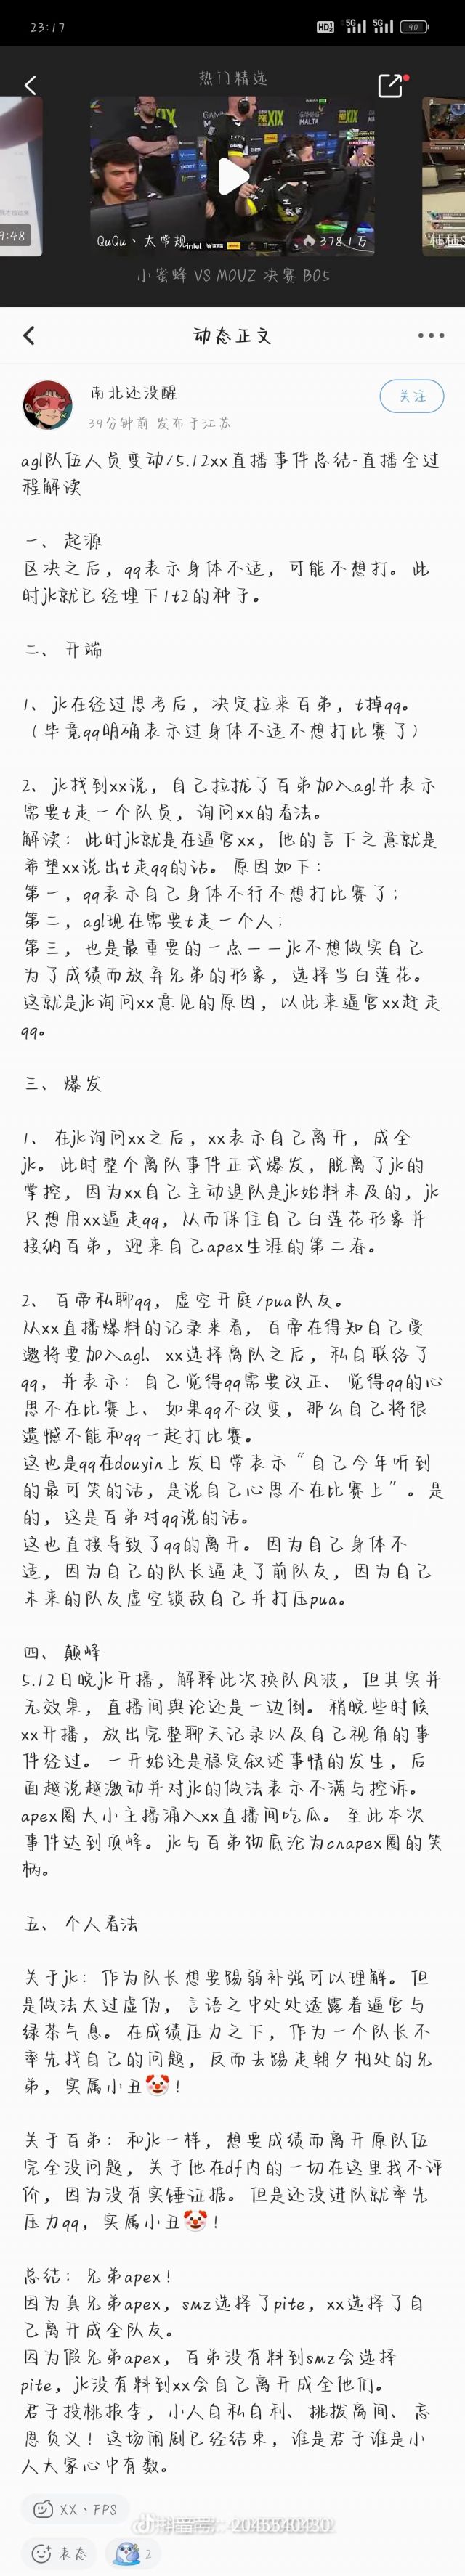 23:17
HD
5G
5G
90
热门精选
9:48
QuQu、太常规
intel
GAMING
MALTA
378.1万
小蜜蜂 VS MOUZ 决赛 BO5
动态正文
南北还没醒
39分钟前 发布于江苏
关注
agl队伍人员变动/5.12xx直播事件总结-直播全过
程解读
一、起源
区决之后，qq表示身体不适，可能不想打。此
时jk就已经埋下1t2的种子。
二、开端
1、jk在经过思考后，决定拉来百弟，t掉qq。
（毕竟qq明确表示过身体不适不想打比赛了）
2、jk找到xx说，自己拉拢了百弟加入agl并表示
需要t走一个队员，询问xx的看法。
解读：此时jk就是在逼宫xx，他的言下之意就是
希望xx说出t走qq的话。原因如下：
第一，qq表示自己身体不行不想打比赛了；
第二，agl现在需要t走一个人；
第三，也是最重要的一点——jk不想做实自己
为了成绩而放弃兄弟的形象，选择当白莲花。
这就是jk询问xx意见的原因，以此来逼宫xx赶走
qq。
三、爆发
1、在jk询问xx之后，xx表示自己离开，成全
jk。此时整个离队事件正式爆发，脱离了jk的
掌控，因为xx自己主动退队是jk始料未及的，jk
只想用xx逼走qq，从而保住自己白莲花形象并
接纳百弟，迎来自己apex生涯的第二春。
2、百帝私聊qq，虚空开庭/pua队友。
从xx直播爆料的记录来看，百帝在得知自己受
邀将要加入agl、xx选择离队之后，私自联络了
qq，并表示：自己觉得qq需要改正、觉得qq的心
思不在比赛上、如果qq不改变，那么自己将很
遗憾不能和qq一起打比赛。
这也是qq在douyin上发日常表示“自己今年听到
的最可笑的话，是说自己心思不在比赛上”。是
的，这是百弟对qq说的话。
这也直接导致了qq的离开。因为自己身体不
适，因为自己的队长逼走了前队友，因为自己
未来的队友虚空锁敌自己并打压pua。
四、颠峰
5.12日晚jk开播，解释此次换队风波，但其实并
无效果，直播间舆论还是一边倒。稍晚些时候
xx开播，放出完整聊天记录以及自己视角的事
件经过。一开始还是稳定叙述事情的发生，后
面越说越激动并对jk的做法表示不满与控诉。
apex圈大小主播涌入xx直播间吃瓜。至此本次
事件达到顶峰。jk与百弟彻底沦为cnapex圈的笑
柄。
五、个人看法
关于jk：作为队长想要踢弱补强可以理解。但
是做法太过虚伪，言语之中处处透露着逼宫与
绿茶气息。在成绩压力之下，作为一个队长不
率先找自己的问题，反而去踢走朝夕相处的兄
弟，实属小丑🤡！
关于百弟：和jk一样，想要成绩而离开原队伍
完全没问题，关于他在df内的一切在这里我不评
价，因为没有实锤证据。但是还没进队就率先
压力qq，实属小丑🤡！
总结：兄弟apex！
因为真兄弟apex，smz选择了pite，xx选择了自
己离开成全队友。
因为假兄弟apex，百弟没有料到smz会选择
pite，jk没有料到xx会自己离开成全他们。
君子投桃报李，小人自私自利、挑拨离间、忘
恩负义！这场闹剧已经结束，谁是君子谁是小
人大家心中有数。
XX、FPS
抖音号：2045540430
表态
2